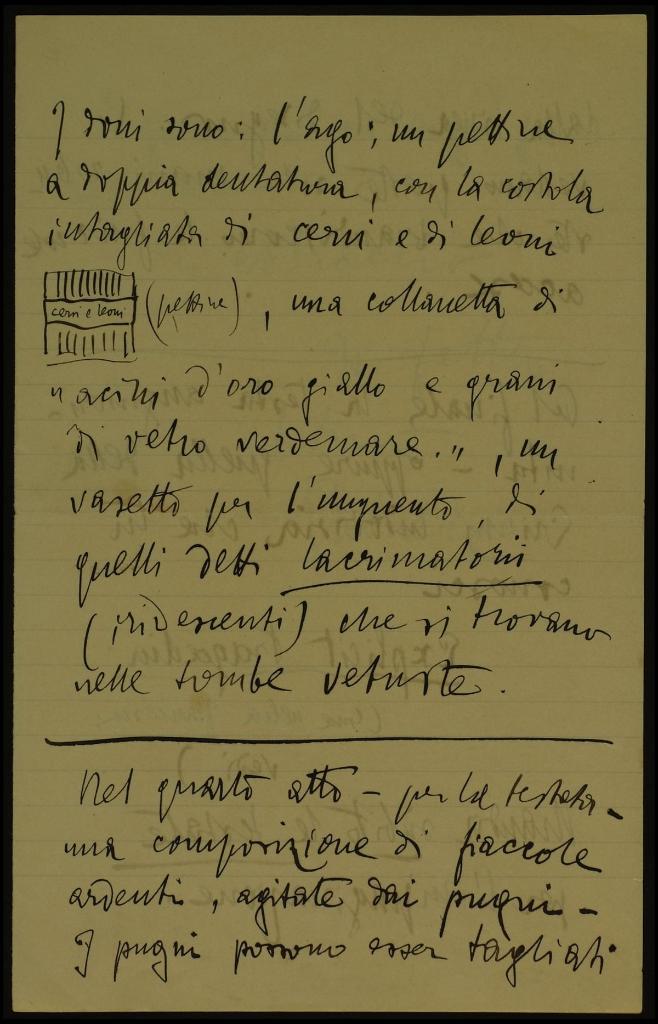 I doni sono: l'ago; un pettine
a doppia dentatura, con la costola
intagliata di cervi e di leoni
cervi e leoni (pettine), una collanetta di
"acini d'oro giallo e grani
di vetro verdemare.", un
vasetto per l'unguento, di
quelli detti lacrimatorii
(iridescenti) che si trovano
nelle tombe vetuste.
Nel quarto atto – per la testata –
una composizione di fiaccole
ardenti, agitate dai pugni –
I pugni possono esser tagliati